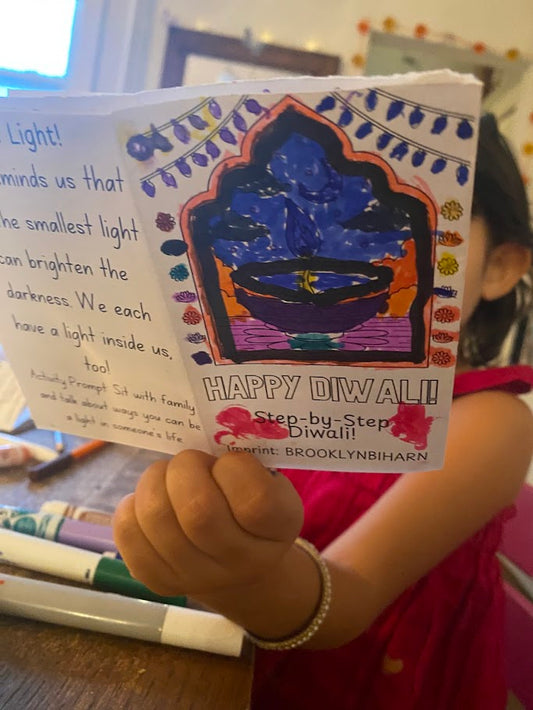 Light!
minds us that
he smallest light
can brighten the
darkness. We each
have a light inside us,
too!
Activity Prompt: Sit with family
and talk about ways you can be
a light in someone's life
HAPPY DIWALI!
Step-by-Step
Diwali!
Imprint: BROOKLYNBIHARN